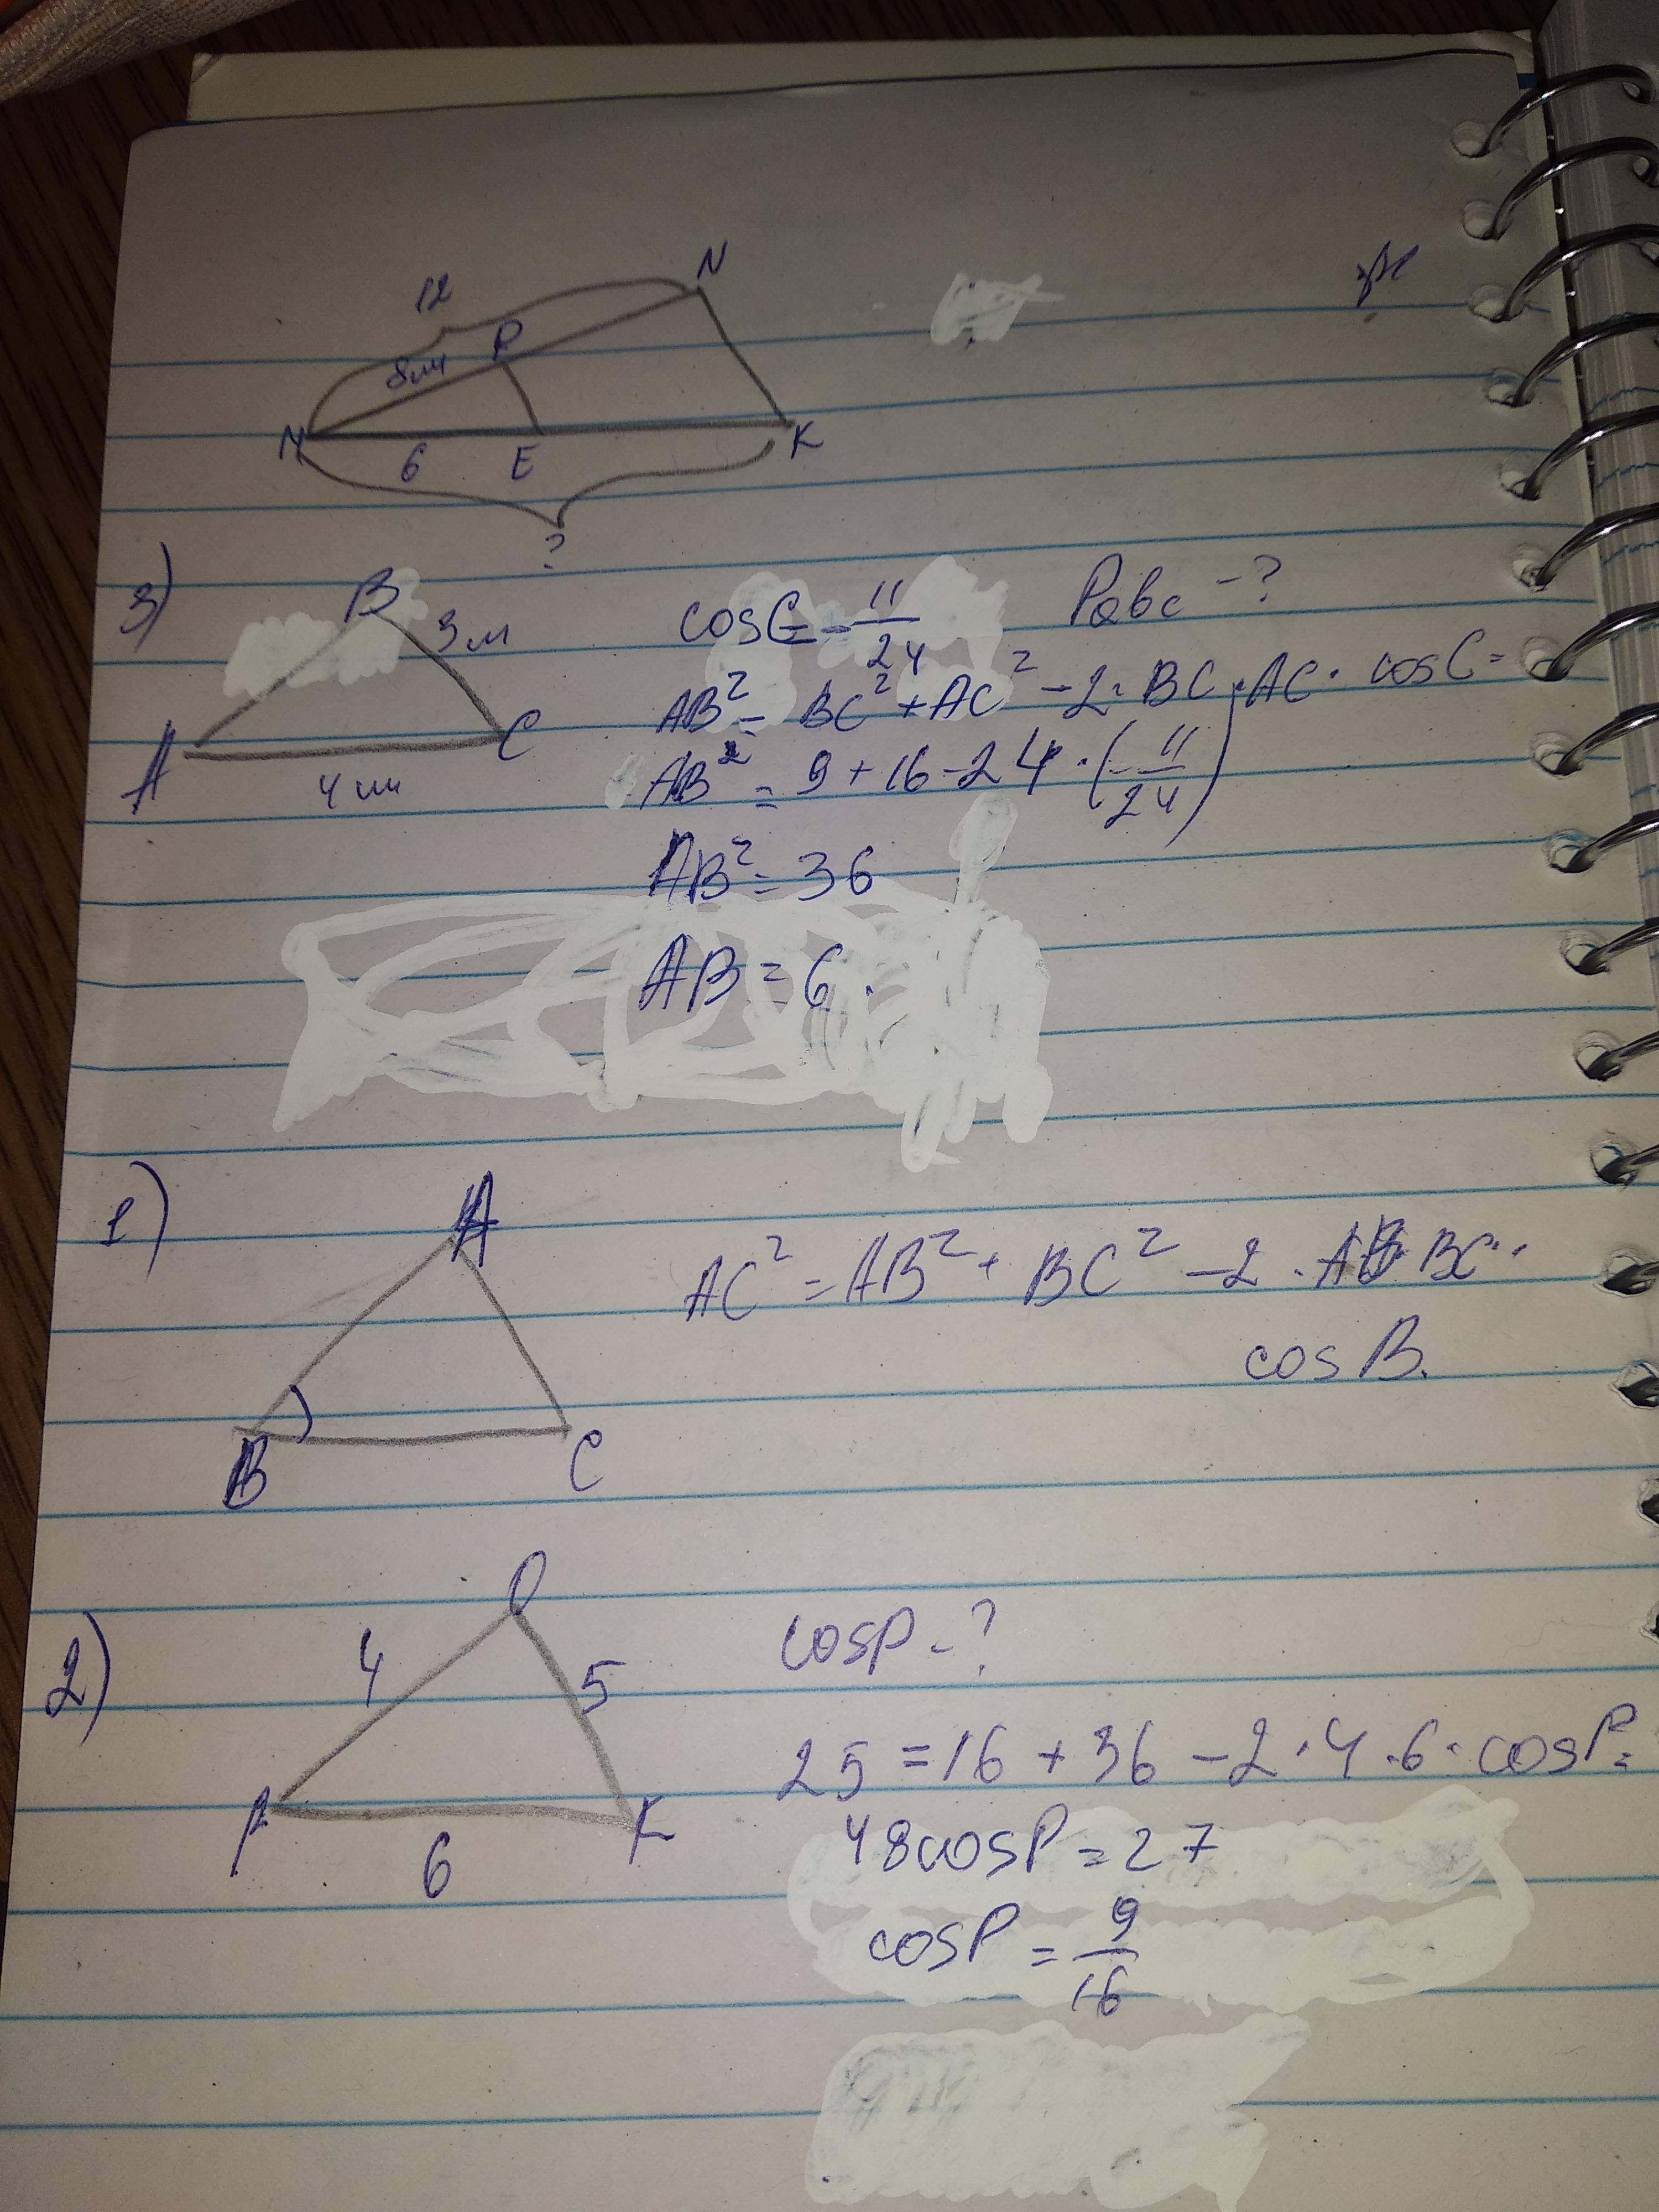 N
12
P
8см
M
6
E
K
?
3)
B
3см
A
C
4см
cosC = -11/24
Pabc -?
AB² = BC² + AC² - 2 · BC · AC · cosC =
AB² = 9 + 16 - 24 · (-11/24)
AB² = 36
AB = 6.
1)
A
B
C
AC² = AB² + BC² - 2 · AB · BC ·
cos B.
2)
O
4
5
P
K
6
cosP - ?
25 = 16 + 36 - 2 · 4 · 6 · cosP =
48cosP = 27
cosP = 9/16